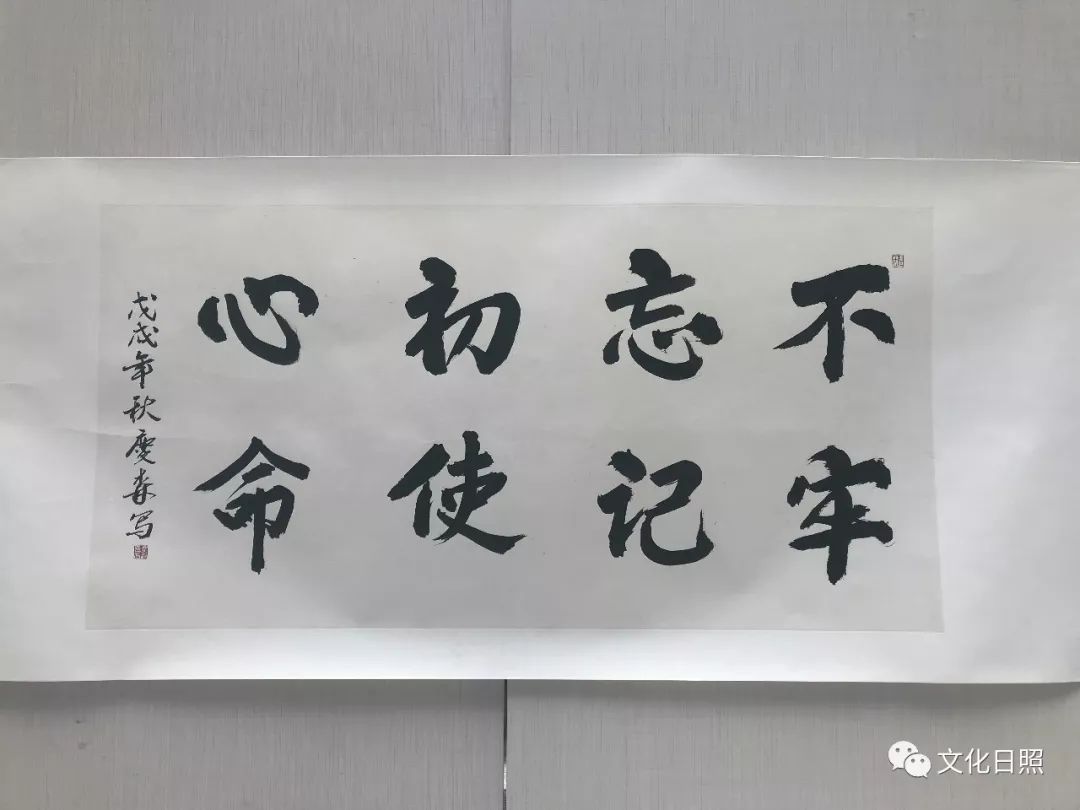 不忘初心
牢记使命
戊戌年秋慶森写
文化日照